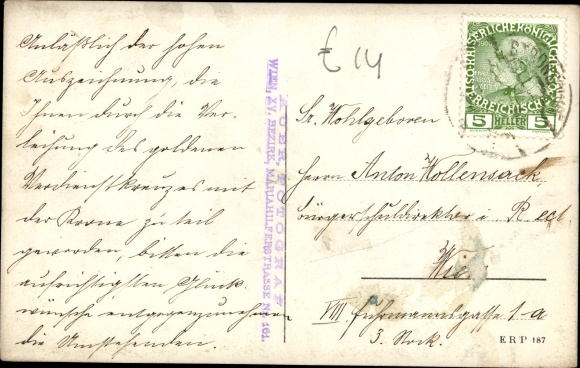 Anläßlich der hohen
Auszeichnung, die
Ihnen durch die Ver-
leihung des goldenen
Verdienstkreuzes mit
der Krone zu teil
geworden, bitten die
aufrichtigsten Glück-
wünsche entgegenzunehmen
die Umstehenden.
€ 14
HUBER, FOTOGRAF
WIEN, XV. BEZIRK, MARIAHILFERSTRASSE Nr. 161.
KAISERLICHE KÖNIGLICHE
ÖSTERREICHISCHE
5 HELLER 5
Sr. Wohlgeboren
Herrn Anton Wollensack
Bürgerschuldirektor i. R. etz.
Wien
VIII Fuhrmannsgasse 1-a
3. Stock.
ERP 187